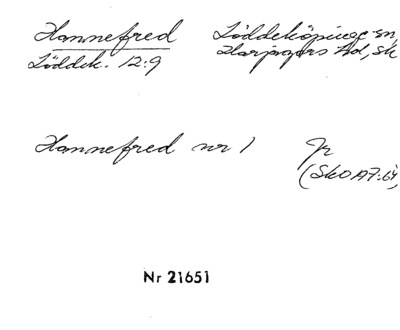 Hannefred Löddeköpinge sn,
Löddek. 12:9 Harjagers hd, Sk
Hannefred nr 1 Jr
(SkO A7:64)
Nr 21651